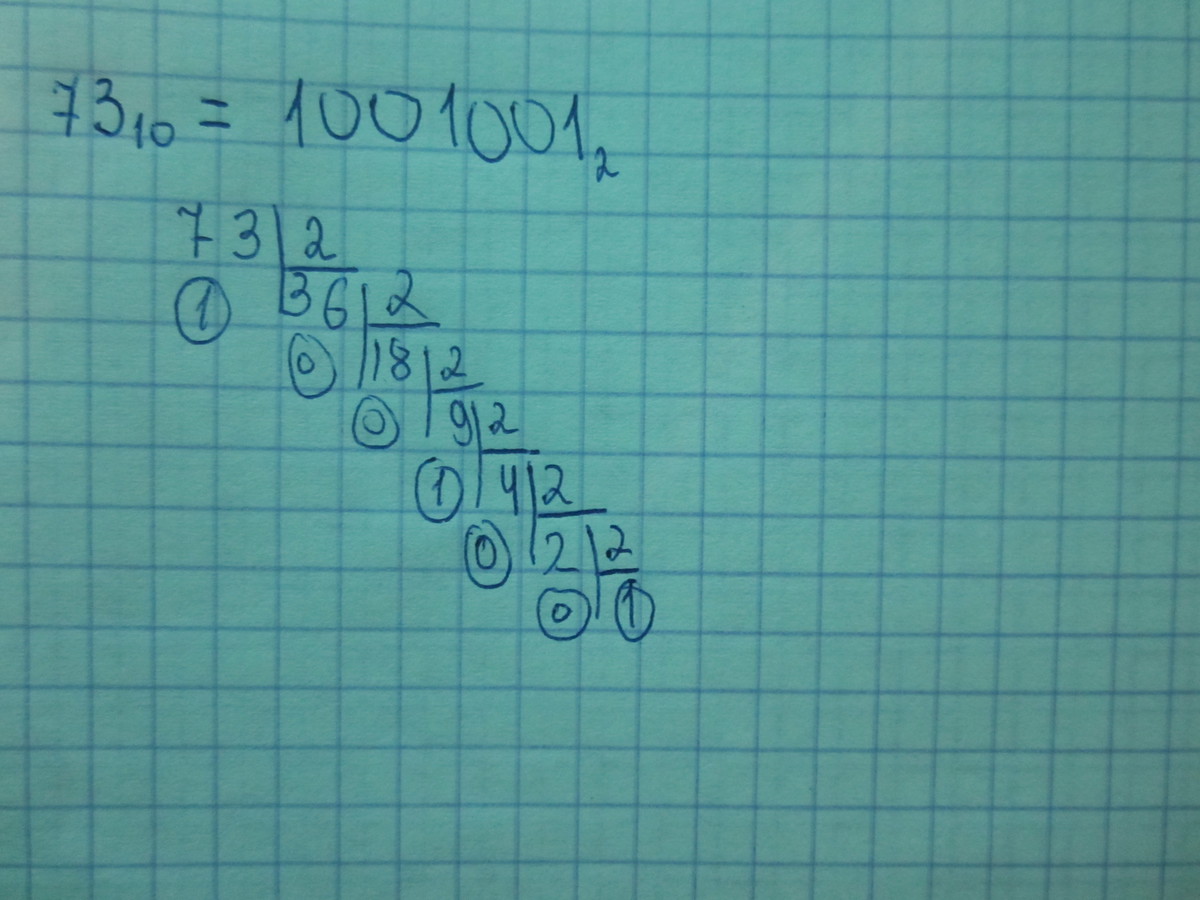 73₁₀ = 1001001₂
73 2
1 36 2
0 18 2
0 9 2
1 4 2
0 2 2
0 1